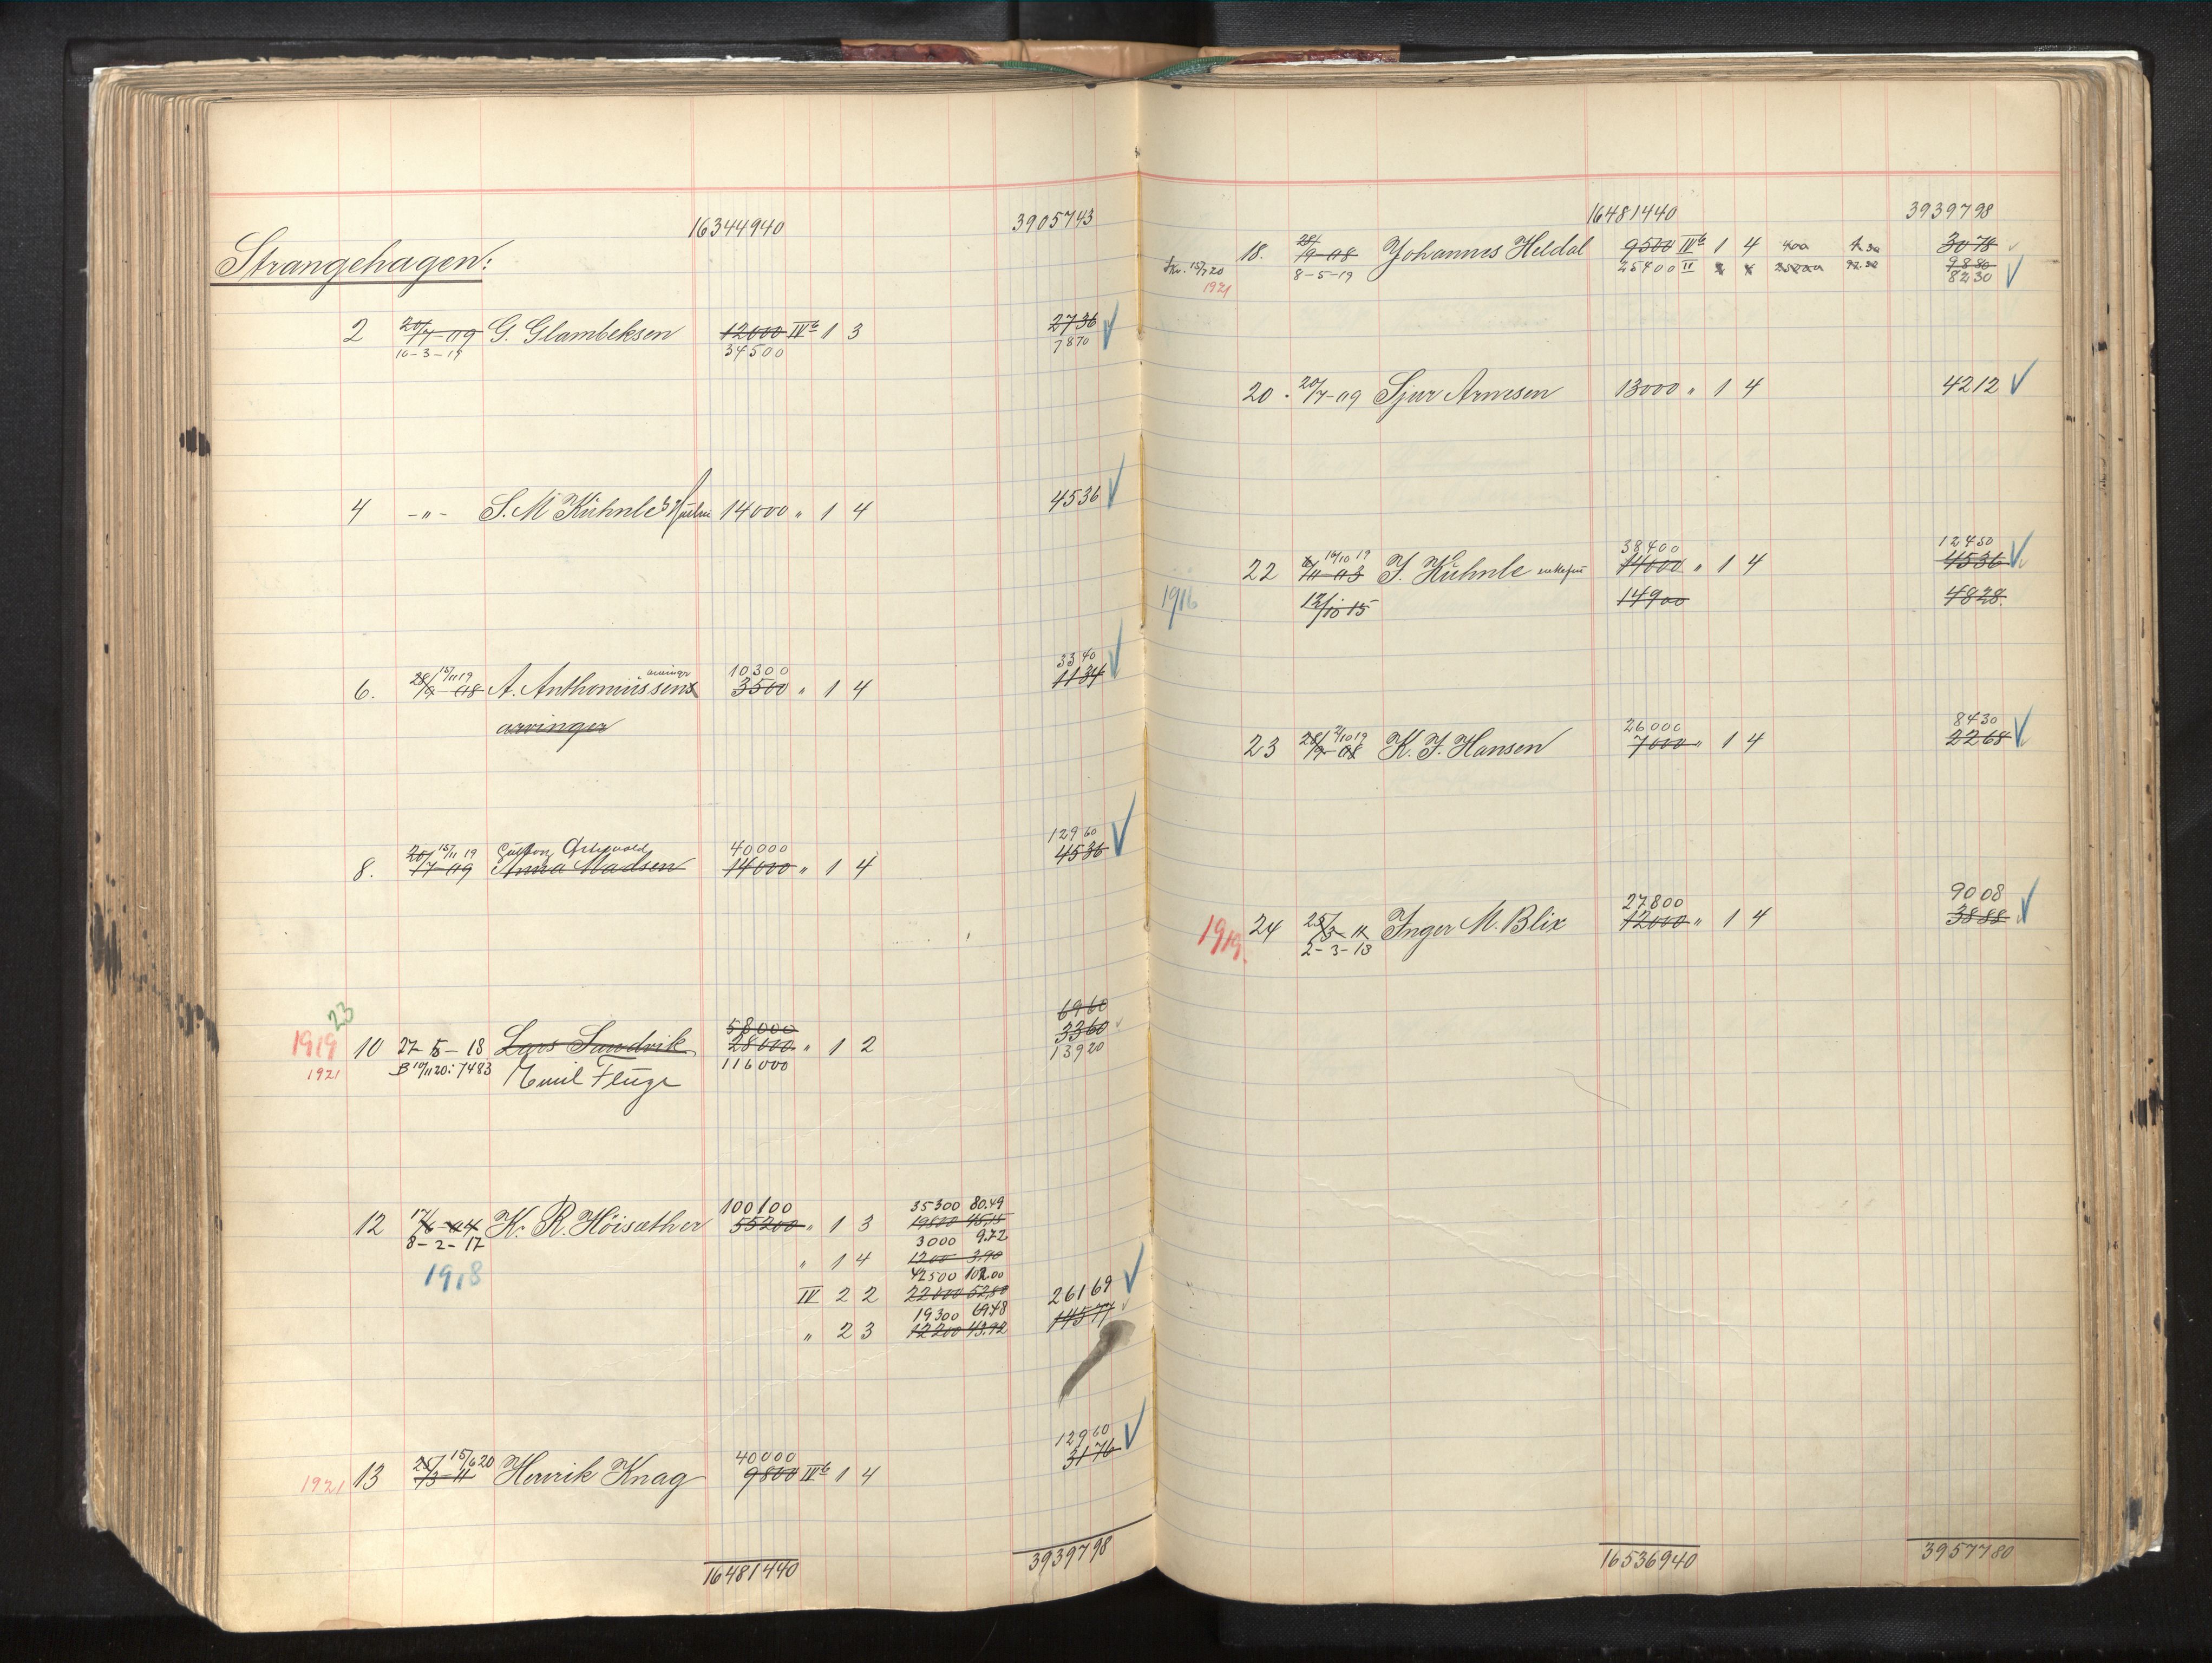 16344940 3905743
Strangehagen:
2 20/7-09 G. Glambeksen 12000 IVb 1 3 2736
10-3-19 34500 7870
4 -"- S. M Kühnle's 14000 " 1 4 4536
15/11 19 arvinger 10300 3340
6. 28/9-08 A. Anthoniissens 3500 " 1 4 1134
arvinger
15/11 19 40000 12960
8. 20/7-09 Anna Madsen 14000 " 1 4 4536
23 58000 6960
1919 10 27-5-18 Lars Sandvik 28000 " 1 2 3360
1921 B 10/11 20: 7483 Emil Flüge 116000 13920
100100 35300 80.49
12 17/6-04 K. R. Höisæther 55200 " 1 3 19800 45,15
8-2-17 3000 9.72
1918 " 1 4 1200 3.90
42500 102.00
IV 2 2 22000 52,80 26169
19300 69.48
" 2 3 12200 43.92 14577
15/6 20 40000 12960
1921 13 25/3-11 Henrik Knag 9800 IVb 1 4 3176
16481440 3939798
16481440 3939798
18. 28/9-08 Johannes Heldal 9500 IVb 1 4 3078
15/7 20 8-5-19 25400 II 9880
1921 8230
20 20/7-09 Sjur Arnesen 13000 " 1 4 4212
16/10 19 38400 12450
22 11-03 J. Kühnle 14000 " 1 4 4536
1916 12/10 15 14900 4828
10 19 26000 8430
23 28/9-08 K. J. Hansen 7000 " 1 4 2268
27800 9008
1919. 24 25/3-11 Inger M. Blix 12000 " 1 4 3888
2-3-18
16536940 3957780